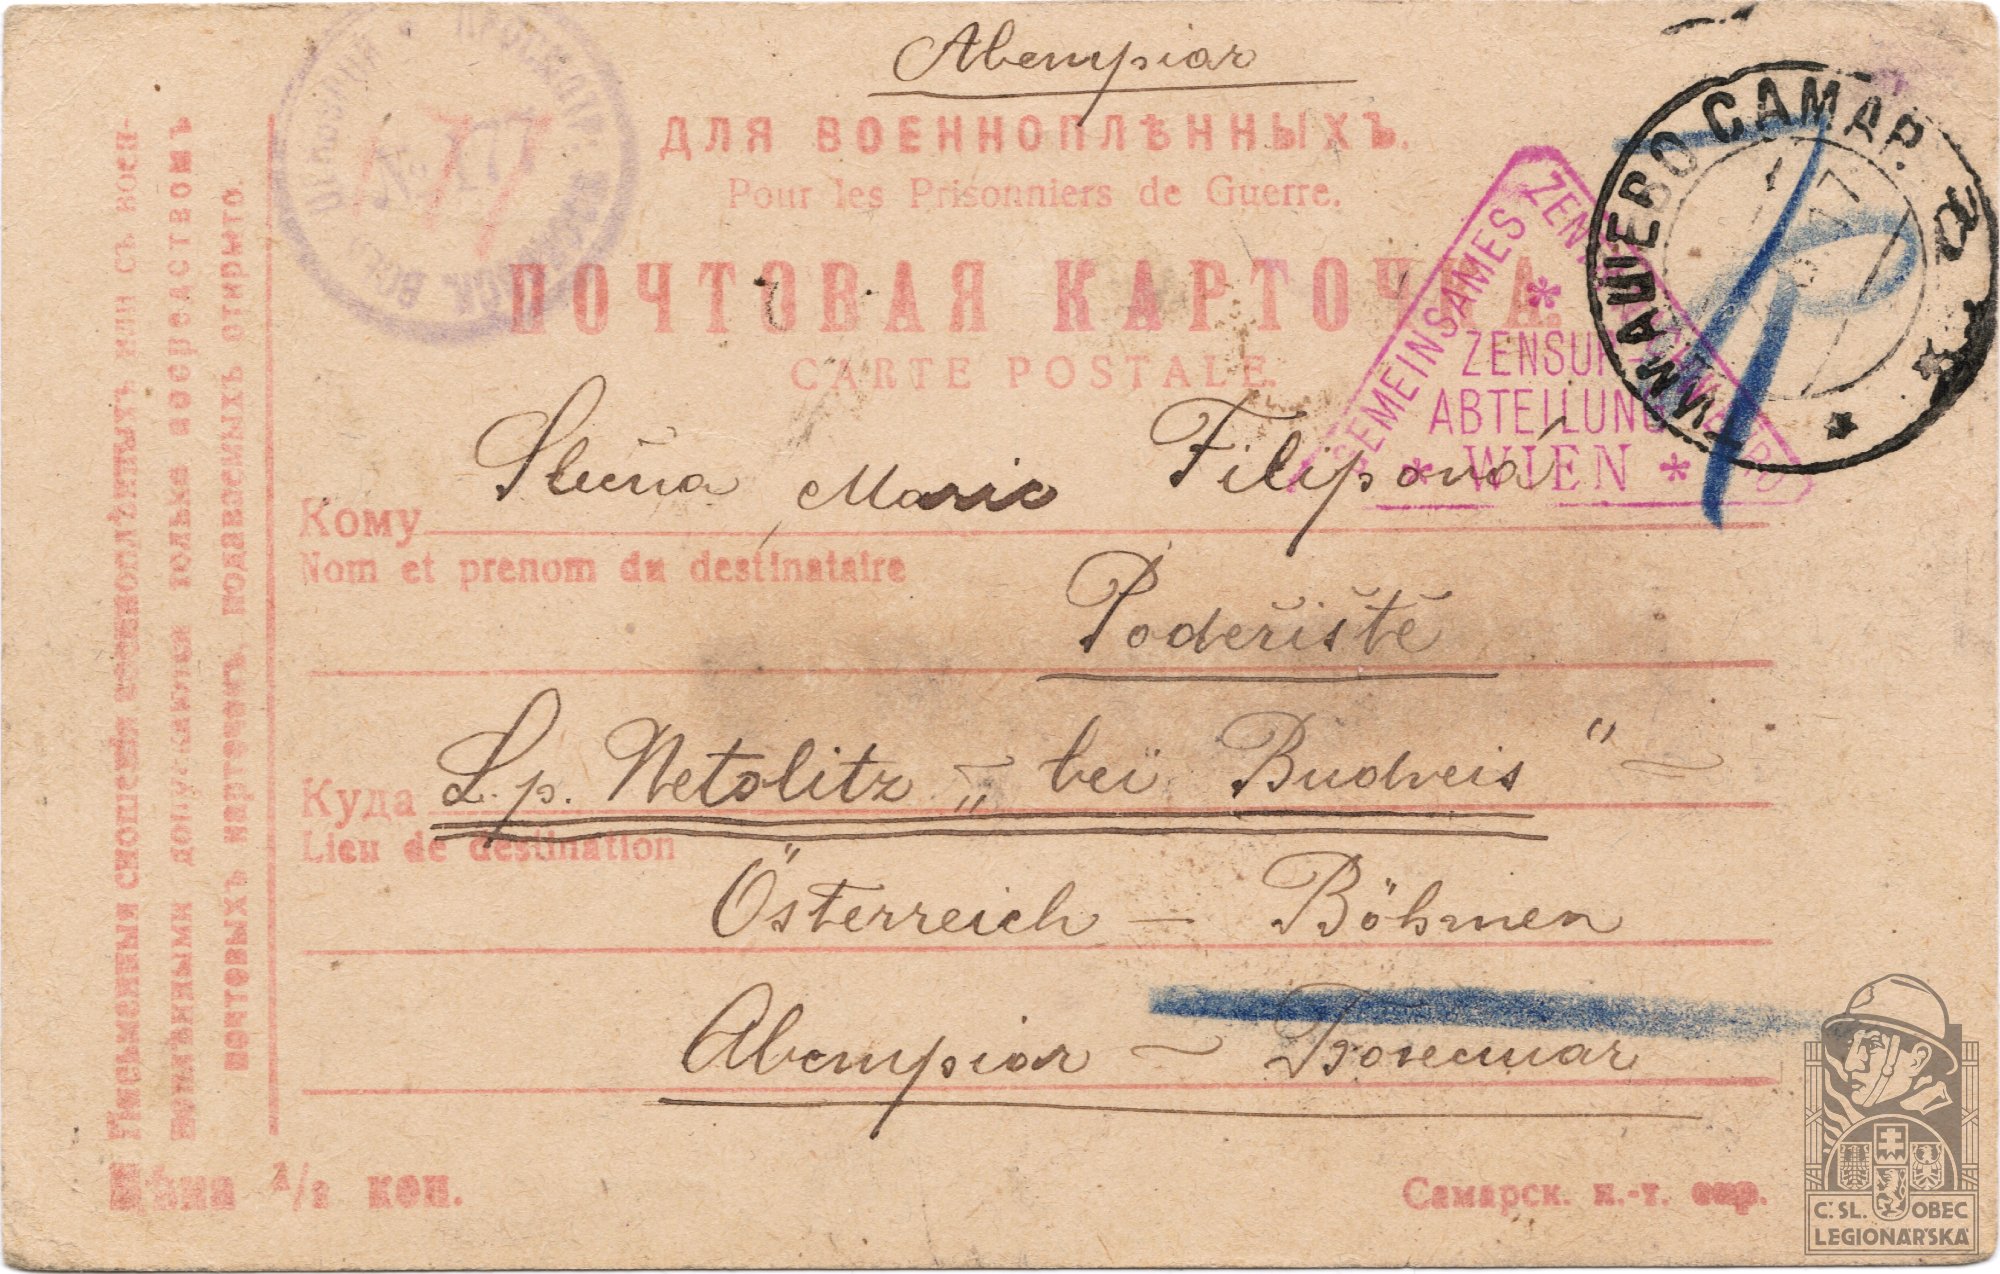 Австрія
ДЛЯ ВОЕННОПЛѢННЫХЪ.
Pour les Prisonniers de Guerre.
ПОЧТОВАЯ КАРТОЧКА.
CARTE POSTALE.
№ 177
ТИМАШЕВО САМАР.
GEMEINSAMES ZENTRAL
ZENSUR
ABTEILUNG
* WIEN *
Кому Slečna Marie Filipová
Nom et prenom du destinataire
Podeřiště
Куда L.p. Netolitz – „bei Budweis“ –
Lieu de destination
Österreich – Böhmen
Письменныя сношенія военноплѣнныхъ или съ воен-
ноплѣнными допускаются только посредствомъ
почтовыхъ карточекъ, подавѣемыхъ открыто.
Цѣна 1/2 коп.
Самарск. п.-т. окр.
Č.SL. OBEC
LEGIONÁŘSKÁ